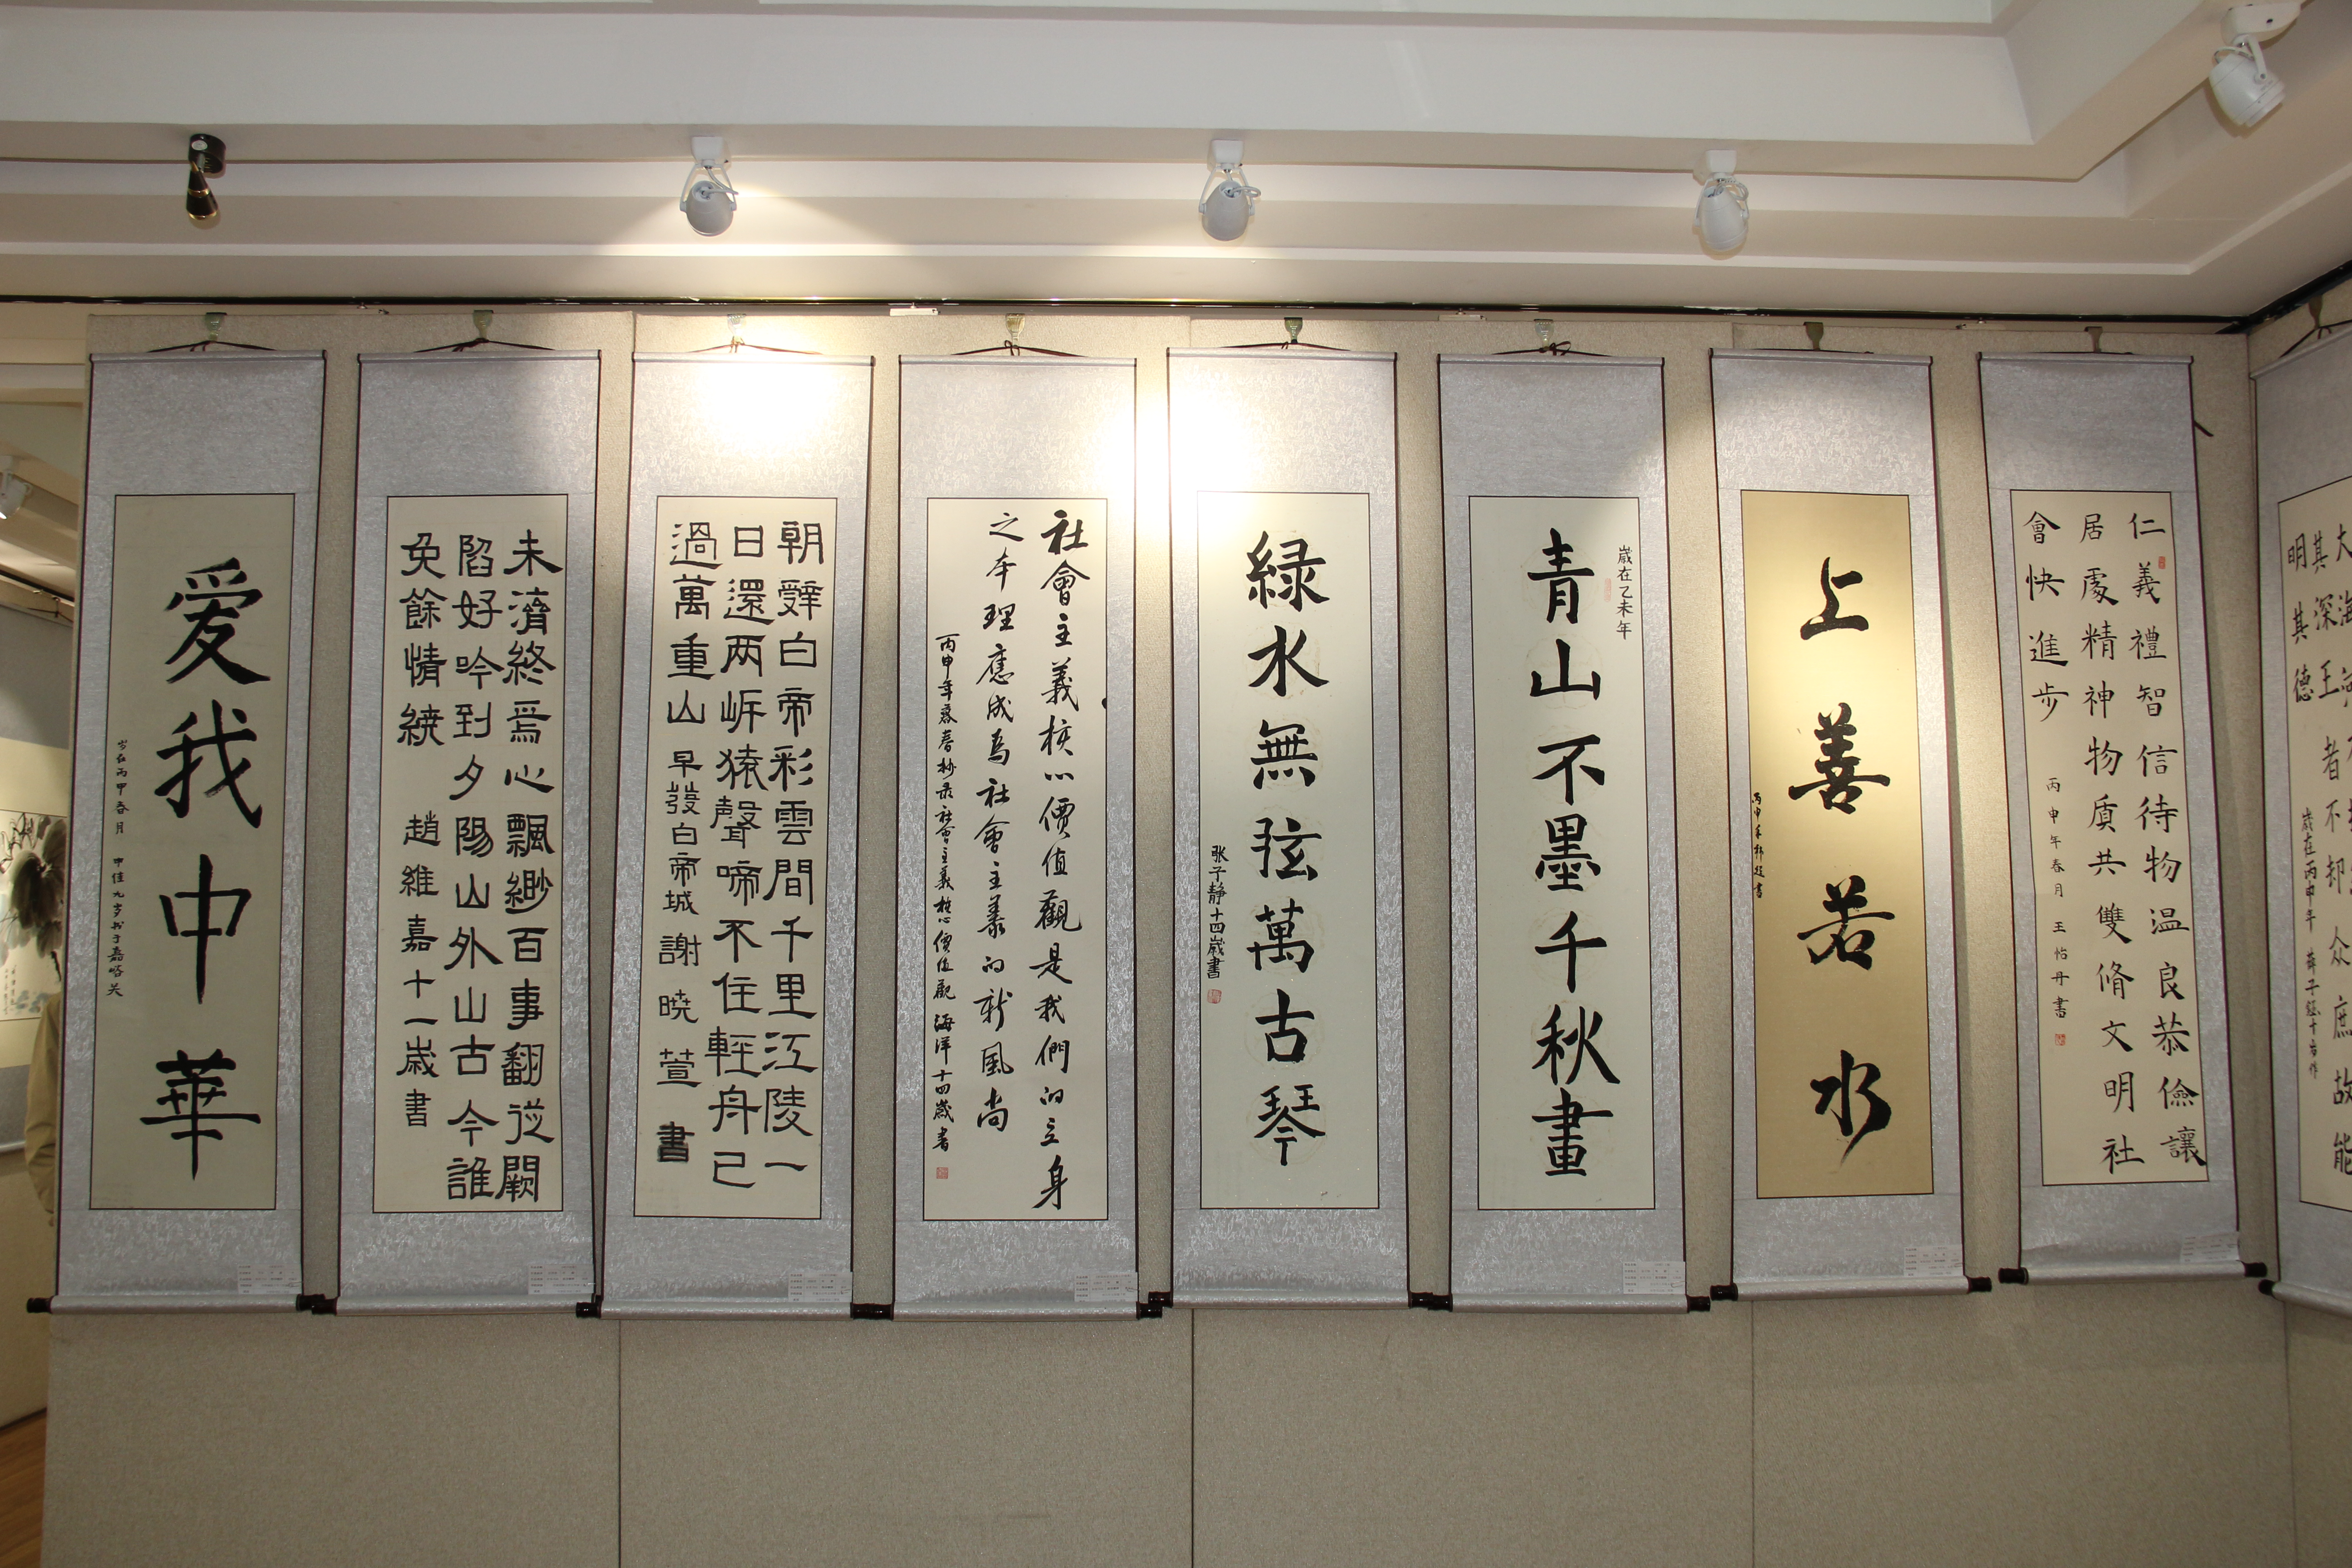 其深王者不却众庶故能
明其德
仁義禮智信待物温良恭儉讓
居處精神物质共雙脩文明社
會快進步
丙申年春月 王怡丹書
上善若水
歲在乙未年
青山不墨千秋畫
緑水無弦萬古琴
张子静十四歲書
社會主義核心價值觀是我們的立身
之本理應成為社會主義的新風尚
丙申年暮春抄录社會主義核心價值觀 海洋十四歲書
朝辭白帝彩雲間千里江陵一
日還两岍猿聲啼不住輕舟已
過萬重山 早發白帝城 謝曉萱書
未濟終焉心飄緲百事翻從闕
陷好吟到夕陽山外山古今誰
免餘情繞 趙維嘉十一歲書
愛我中華